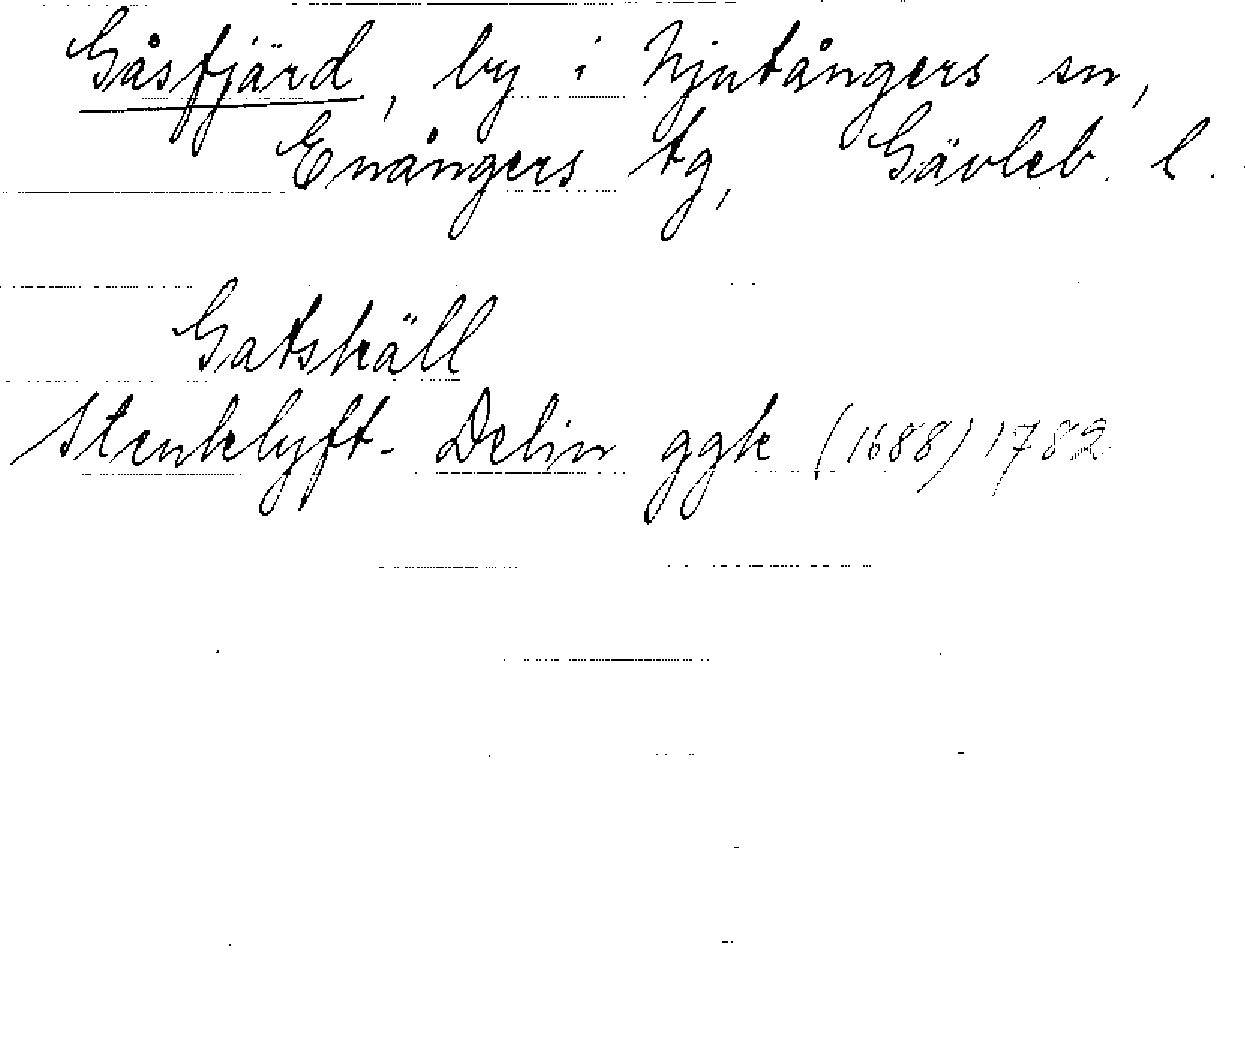 Gåsfjärd, by i Njutångers sn,
Enångers tg, Gävleb. l.
Gatshäll
Stenklyft- Delin ggk (1688) 1782